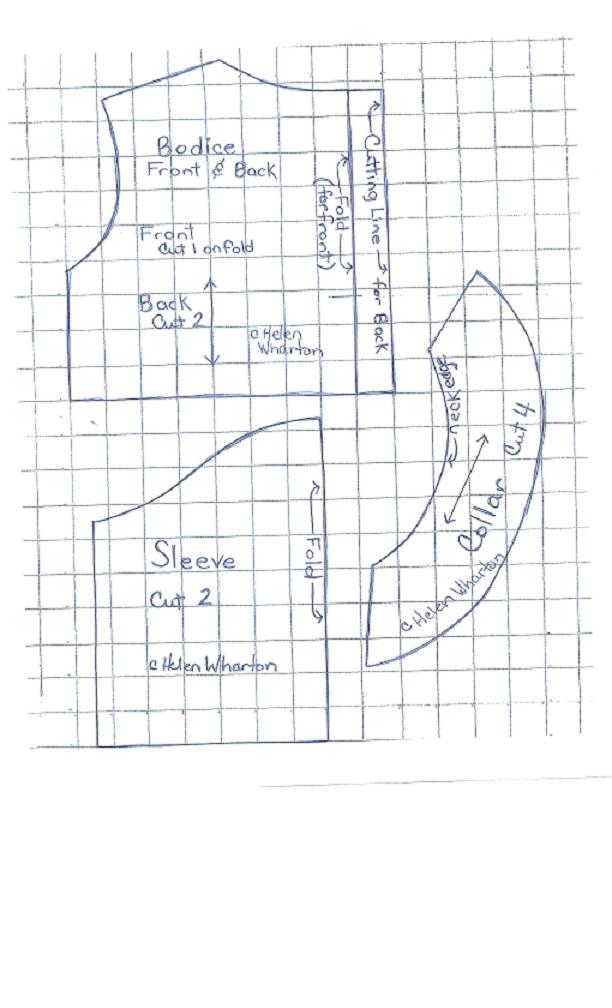 Bodice
Front & Back
Front
Cut 1 on fold
Back
Cut 2
c Helen
Wharton
Fold
(for front)
Cutting Line for Back
neck edge
Collar
Cut 4
c Helen Wharton
Sleeve
Cut 2
c Helen Wharton
Fold